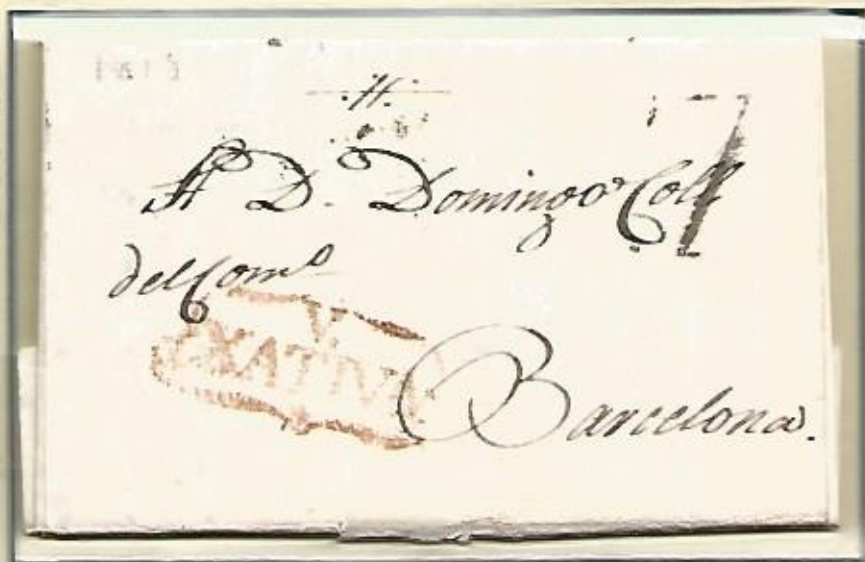 A D. Domingo Coll
del Com.º
V.
XATIVA
Barcelona.